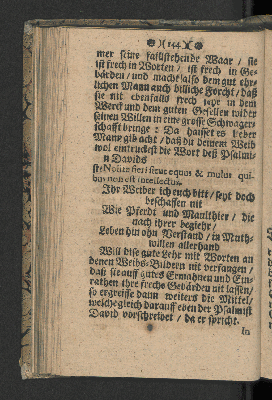 )( 144 )(
mer seine failstehende Waar / sie
ist frech in Worten / ist frech in Ge-
bärden / und macht also dem gut ehr-
lichen Mann auch billiche Forcht / daß
sie nit ebenfalls frech seye in dem
Werck und dem guten Gesellen wider
seinen Willen in eine grosse Schwagerschafft bringe : Da haisset es lieber
Mann gib acht / daß du deinem Weib
wol eintruckest die Wort deß Psalmi-
sten Davids
Nolite fieri sicut equus & mulus qui-
bus non est intellectus.
Ihr Weiber ich euch bitt / seyt doch
beschaffen nit
Wie Pferdt und Maulthier / die
nach ihrer begiehr /
Leben hin ohn Verstand / in Muth-
willen allerhand
Will dise gute Lehr mit Worten an
denen Weibs-Bildern nit verfangen /
daß sie auff gutes Ermahnen und Ein-
rathen ihre freche Gebärden nit lassen /
so ergreiffe dann weiters die Mittel /
welche gleich darauff eben der Psalmist
David vorschreibet / da er spricht.
In